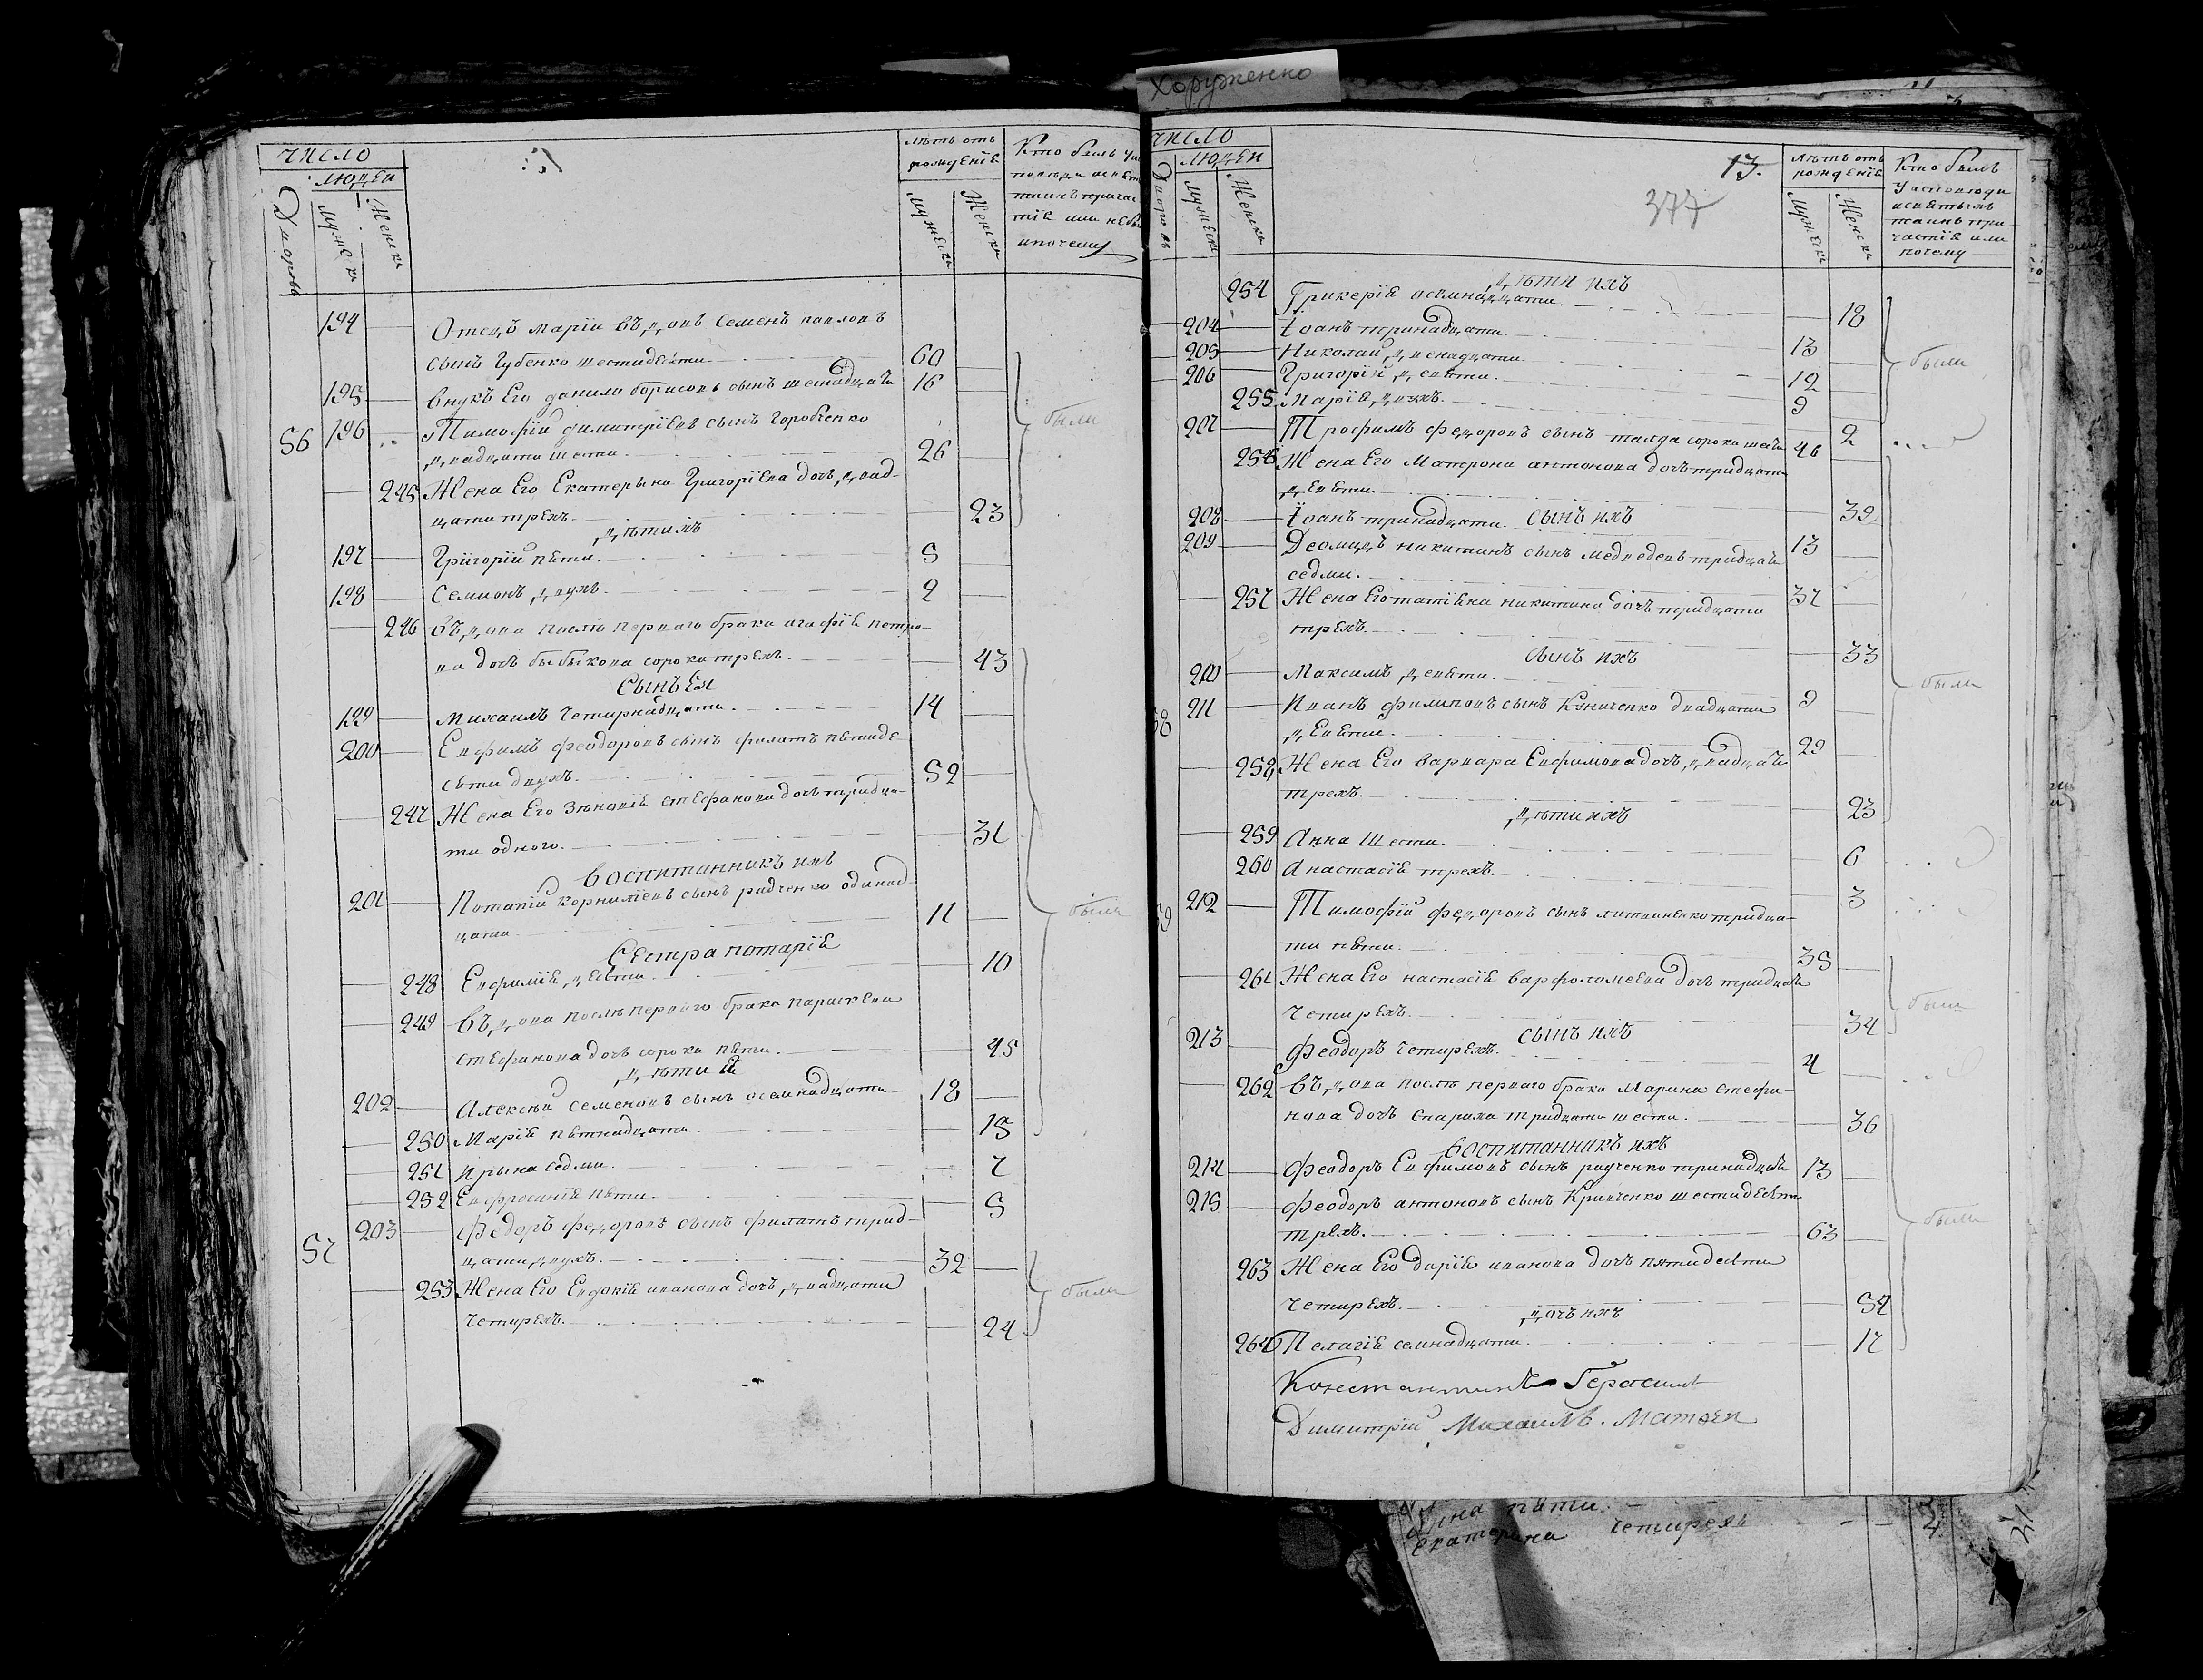 Хоруженко
число
людей
Дворовъ
мужеска
женска
лѣтъ отъ
рожденія
мужеска
женска
Кто былъ у ис
194 Отецъ Маріи вдовъ Семенъ павловъ
сынъ Губенко шестидесяти 60
195 внукъ Его данило борисовъ сынъ шеснадцати 16
56 196 Тимофій димитріевъ сынъ Горобченко
двадцати шести. 26
были
245 Жена Его Екатерына Григоріева дочь двад-
цати трехъ. 23
дѣти ихъ
197 Григорій пяти. 5
198 Семионъ двухъ. 2
246 вдова послѣ перваго брака агафія петро-
ва дочь сорока трехъ. 43
Сынъ Ея
199 Михаилъ Четирнадцати. 14
200 Евфимъ феодоровъ сынъ филатъ пятиде-
сяти двухъ. 52
247 Жена Его Зѣновія стефанова дочь тридца-
ти одного. 31
воспитанникъ ихъ
201 Потапій корниліевъ сынъ радченко одинад-
цати. 11
были
Сестра потапія
248 Евфимія десяти. 10
249 вдова послѣ перваго брака параскева
стефанова дочь сорока пяти. 45
дѣти Ея
202 Алексѣй семеновъ сынъ осемнадцати 18
250 Марія пятнадцати 15
251 Ирына седми. 7
252 Евфросинія пяти. 5
57 203 Федоръ федоровъ сынъ филатъ трид-
цати двухъ. 32
253 Жена Его Евдокія иванова дочь двадцати
Четирехъ. 24
были
число
людей
Дворовъ
мужеска
Женска
13.
377
лѣтъ отъ
рожденія
мужеска
Женска
Кто былъ
У исповюди
и святыхъ
таинъ при-
частія или
почему
дѣти ихъ
254 Гликерія осемнадцати. 18
204 Іоанъ тринадцати. 13
205 Николай двенадцати. 12
были
206 Григорій девяти. 9
255 Марія двухъ. 2
207 Трофимъ федоровъ сынъ таляда сорока шести 46
256 Жена Его Матрона антонова дочь тридцати
девяти. 39
сынъ ихъ
208 Іоанъ тринадцати. 13
209 Деомидъ никитинъ сынъ медведевъ тридцати
седми. 37
257 Жена Его никитина дочь тридцати
трехъ. 33
сынъ ихъ
210 Максимъ девяти. 9
были
58 211 Иванъ филиповъ сынъ двадцати
девяти. 29
258 Жена Его варвара Евфимова дочь двадцати
трехъ. 23
дѣти ихъ
259 Анна Шести. 6
260 Анастасія трехъ. 3
59 212 Тимофій федоровъ сынъ литвиненко тридца-
ти пяти. 35
261 Жена Его настасія варфоломеева дочь тридцати
Четирехъ. 34
были
сынъ ихъ
213 феодоръ Четирехъ. 4
262 вдова послѣ перваго брака Марина Стефа-
нова дочь тридцати шести. 36
воспитанникъ ихъ
214 феодоръ Евфимовъ сынъ радченко тринадцати 13
215 феодоръ антоновъ сынъ Кривченко шестидесяти
трехъ. 63
были
263 Жена Его дарія иванова дочь пятидесяти
Четирехъ. 54
дочь ихъ
264 Пелагія семнадцати. 17
Константинъ Герасимъ
Димитрій Михаилъ. Матѳей
пяти.
Екатерина Четирехъ 4